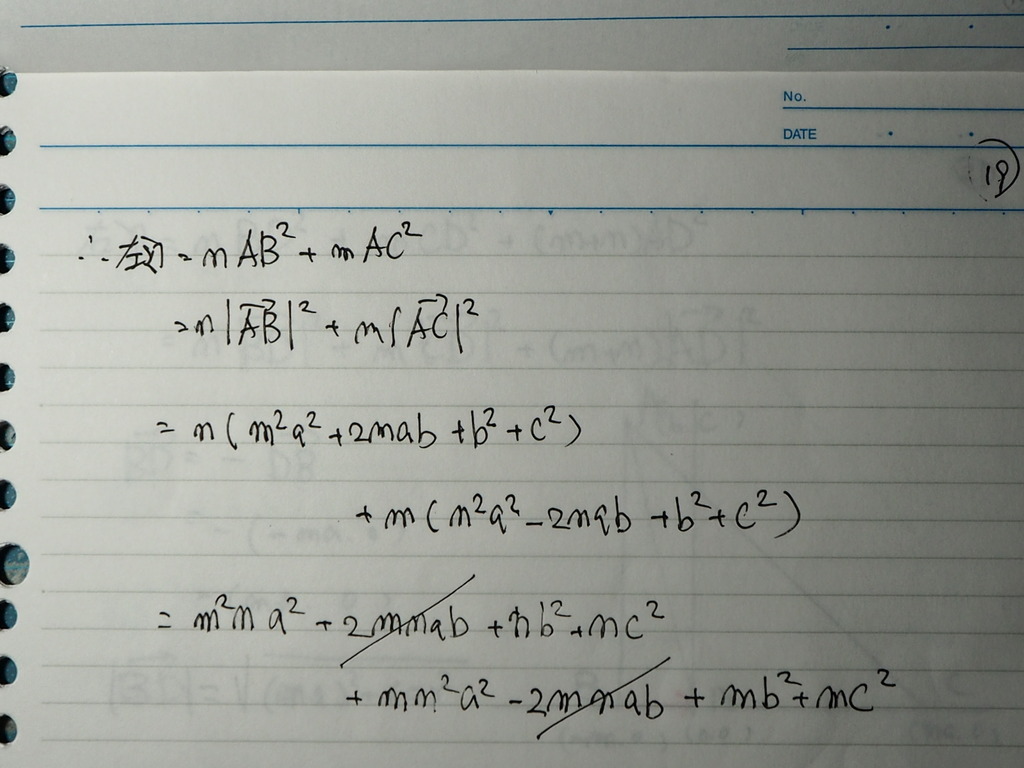 No.
DATE
19
∴ 左辺 = nAB² + mAC²
= n|AB→|² + m|AC→|²
= n(m²a² + 2mab + b² + c²)
+ m(n²a² - 2nab + b² + c²)
= m²na² + 2mnab + nb² + nc²
+ mn²a² - 2mnab + mb² + mc²